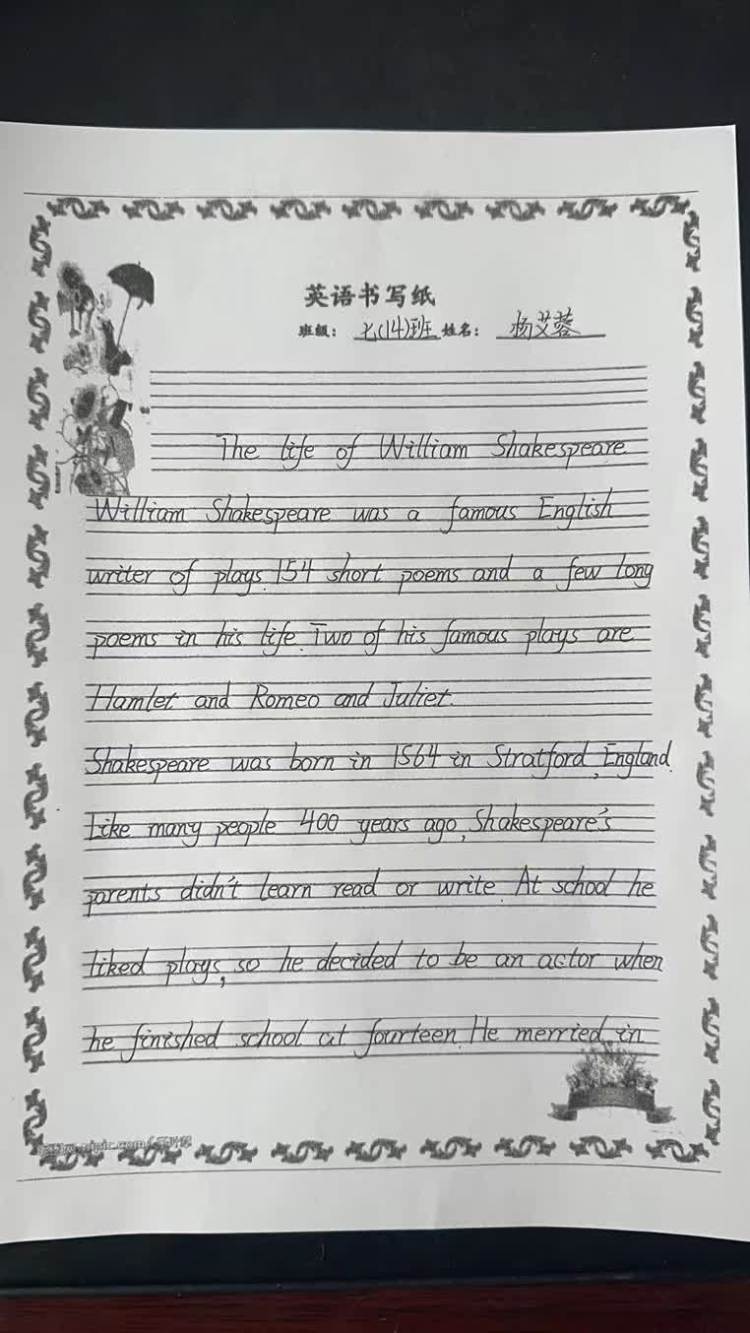 英语书写纸
班级: 七(14)班 姓名: 杨艾蓉
The life of William Shakespeare
William Shakespeare was a famous English
writer of plays.154 short poems and a few long
poems in his life.Two of his famous plays are
Hamlet and Romeo and Juliet.
Shakespeare was born in 1564 in Stratford,England.
Like many people 400 years ago,Shakespeare's
parents didn't learn read or write.At school he
liked plays,so he decided to be an actor when
he finished school at fourteen.He merried in